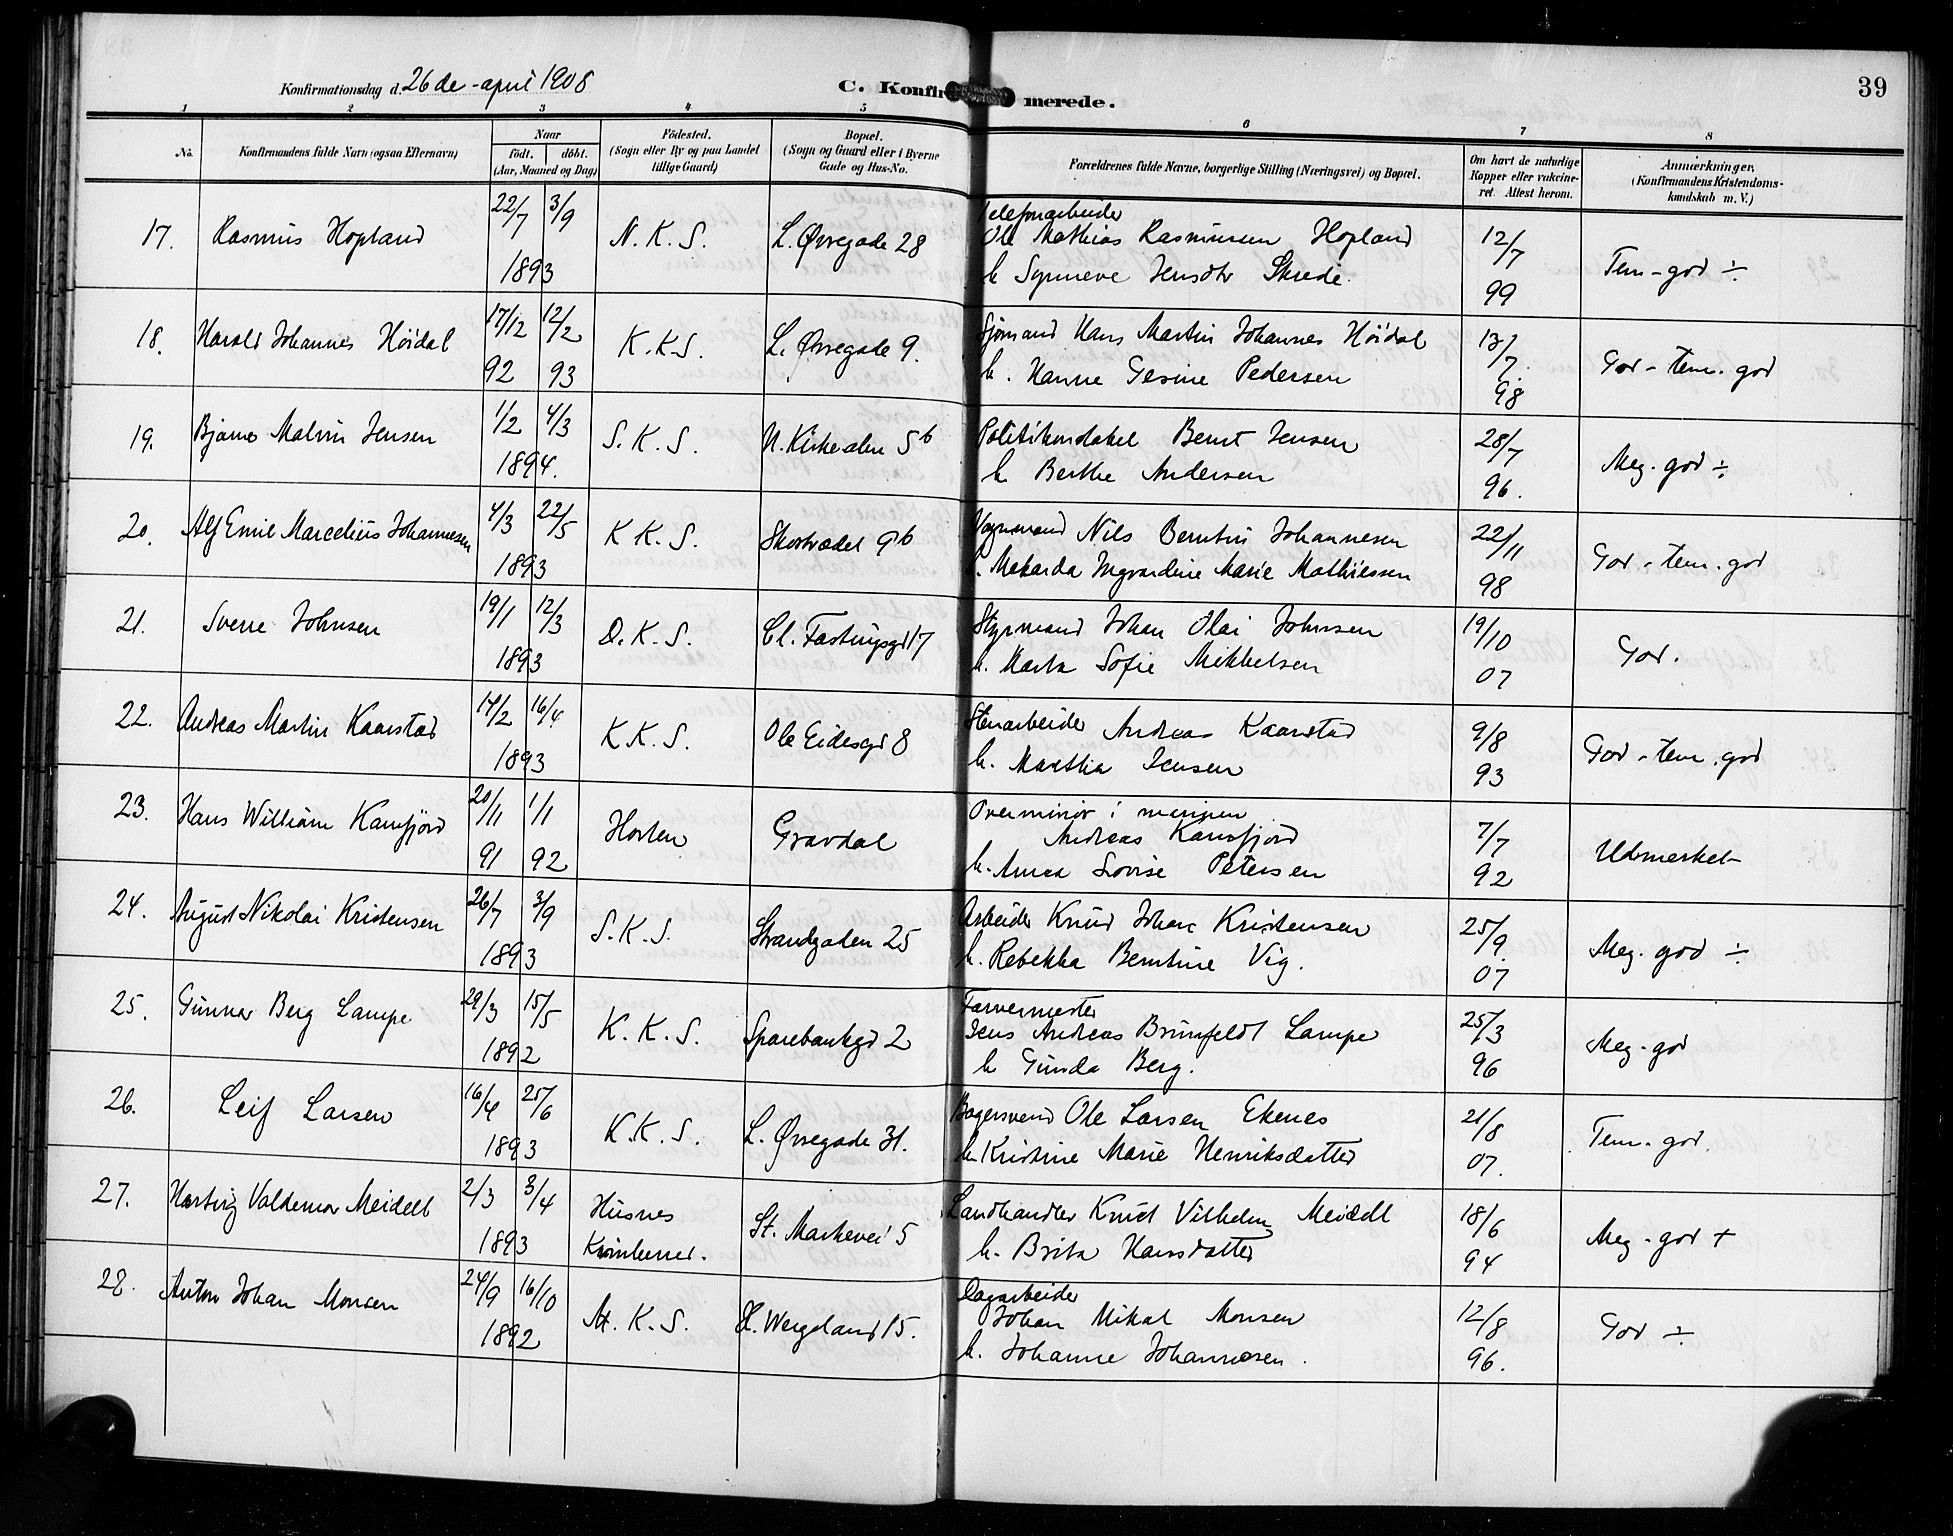 Konfirmationsdag d. 26de april 1908
C. Konfirmerede.
39
1 2 3 4 5 6 7 8
No.
Konfirmandens fulde Navn (ogsaa Efternavn)
Naar
født. døbt.
(Aar, Maaned og Dag)
Födested.
(Sogn eller By og paa Landet
tillige Gaard)
Bopæl.
(Sogn og Gaard eller i Byerne
Gade og Hus-No.
Forældrenes fulde Navne, borgerlige Stilling (Næringsvei) og Bopæl.
Om havt de naturlige
Kopper eller vakcine-
ret. Attest herom.
Anmærkninger,
(Konfirmandens Kristendoms-
kundskab m. V.)
17. Rasmus Hopland 22/7 3/9 1893 N. K. S. L. Øvregade 28
Telefonarbeider
Ole Mathias Rasmussen Hopland
h. Synneve Jensdtr Skrede.
12/7 99
Tem-god ÷
18. Harald Johannes Höidal 17/12 92 12/2 93 K.K.S. L. Øvregade 9.
Sjömand Hans Martin Johannes Höidal
h. Hanne Gesine Pedersen
13/7. 98
God - tem. god
19. Bjarne Malvin Jensen 1/2 4/3 1894. S. K. S. N. Kirkealm 5b
Politikonstabel Bernt Jensen
h Berthe Andersen
28/7 96.
Meg. god ÷
20. Alf Emil Marcelius Johannesen 4/3 22/5 1893 K K. S. Skostrædet 9b
Vognmand Nils Berntin Johannesen
h. Ingvardine Marie Mathiessen
22/11 98
God - tem. god
21. Sverre Johnsen 19/1 12/3 1893 D. K. S. Cl. Fastingsgd 17
Styrmand Johan Olai Johnsen
h. Marta Sofie Mikkelsen
19/10 07
God.
22. Andreas Martin Kaarstad 14/2 16/4 1893 K K. S. Ole Eidesgd 8
Stenarbeider Andreas Kaarstad
h. Marthia Jensen
9/8 93
God - tem. god
23. Hans William Kamfjord 20/11 91 1/1 92 Horten Gravdal
Overminör i marinen
Andreas Kamfjord
h. Anna Lovise Petersen
7/7 92
Udmerket
24. August Nikolai Kristensen 26/7 3/9 1893 S.K.S. Strandgaten 25
Arbeider Knud Johan Kristensen
h. Rebekka Berntine Vig.
25/9. 07
Meg. god ÷
25. Gunnar Berg Lampe 29/3 15/5 1892 K. K. S. Sparebankgd 2
Farvermester
Jens Andreas Brunfeldt Lampe
h Gunda Berg.
25/3 96
Meg. god
26. Leif Larsen 16/4 25/6 1893 K. K. S. L. Øvregade 31.
Bagersvend Ole Larsen Ekenes
h. Kristine Marie Henriksdatter
21/8 07.
Tem. god.
27. Hartvig Valdemar Meidell 2/3 3/4 1893 Husnes
Kvinherred. St. Markevei 5
Landhandler Knut Vilhelm Meidell
h. Brita Hansdatter
18/6 94
Meg. god +
28. Anton Johan Monsen 24/9 16/10 1892 M. K. S. H. Wergeland 15.
Dagarbeider
Johan Mikal Monsen
h. Johanne Johannesen.
12/8 96.
God ÷